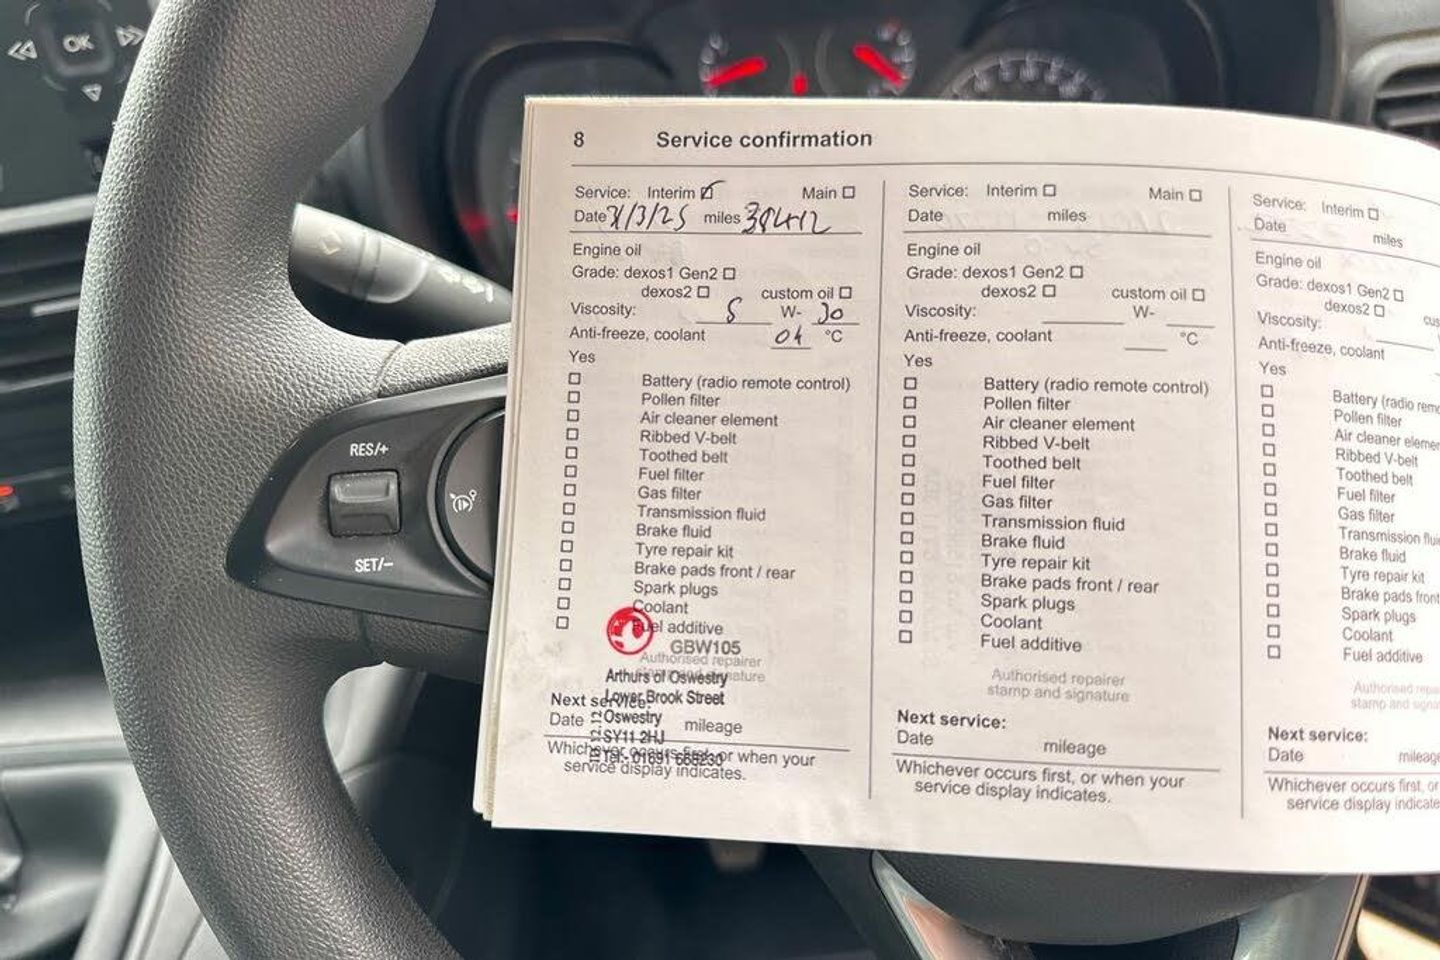 OK
RES/+
SET/-
8 Service confirmation
Service: Interim Main
Date 7/3/25 miles 38412
Engine oil
Grade: dexos1 Gen2
dexos2 custom oil
Viscosity: 5 W- 30
Anti-freeze, coolant °C
Yes
Battery (radio remote control)
Pollen filter
Air cleaner element
Ribbed V-belt
Toothed belt
Fuel filter
Gas filter
Transmission fluid
Brake fluid
Tyre repair kit
Brake pads front / rear
Spark plugs
Coolant
Fuel additive
GBW105
Authorised repairer
stamp and signature
Arthurs of Oswestry
Lower Brook Street
Oswestry
SY11 2HJ
Tel:- 01691 668230
Next service:
Date mileage
Whichever occurs first, or when your
service display indicates.
Service: Interim Main
Date miles
Engine oil
Grade: dexos1 Gen2
dexos2 custom oil
Viscosity: W-
Anti-freeze, coolant °C
Yes
Battery (radio remote control)
Pollen filter
Air cleaner element
Ribbed V-belt
Toothed belt
Fuel filter
Gas filter
Transmission fluid
Brake fluid
Tyre repair kit
Brake pads front / rear
Spark plugs
Coolant
Fuel additive
Authorised repairer
stamp and signature
Next service:
Date mileage
Whichever occurs first, or when your
service display indicates.
Service: Interim
Date miles
Engine oil
Grade: dexos1 Gen2
dexos2 cus
Viscosity:
Anti-freeze, coolant
Yes
Battery (radio remo
Pollen filter
Air cleaner elemen
Ribbed V-belt
Toothed belt
Fuel filter
Gas filter
Transmission flui
Brake fluid
Tyre repair kit
Brake pads front
Spark plugs
Coolant
Fuel additive
Authorised repai
stamp and signa
Next service:
Date mileage
Whichever occurs first, or
service display indicate